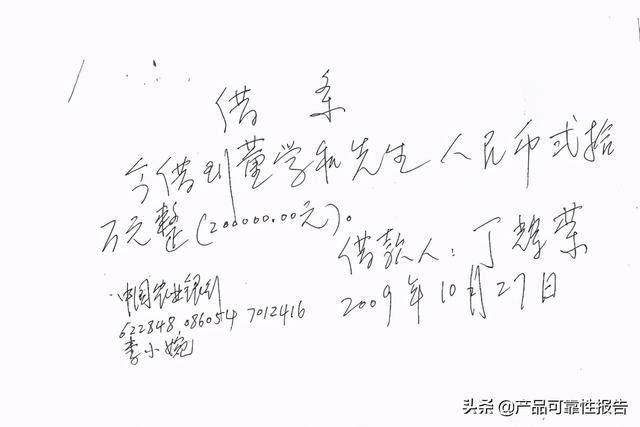 借条
今借到董学和先生人民币弍拾
万元整(200000.00元)。
借款人:丁辉荣
2009年10月27日
中国农业银行
622848 086054 7012416
李小婉
头条 @产品可靠性报告